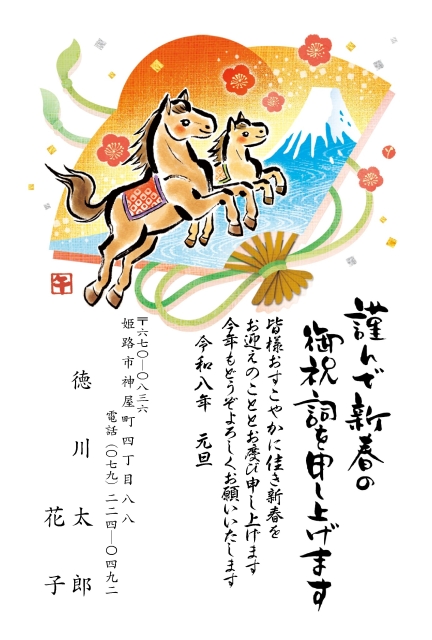 謹んで新春の
御祝詞を申し上げます
皆様おすこやかに佳き新春を
お迎えのこととお慶び申し上げます
今年もどうぞよろしくお願いいたします
令和八年 元旦
〒六七〇―〇八三六
姫路市神屋町四丁目八八
電話(〇七九)二二四―〇四九二
徳川太郎
花子
午